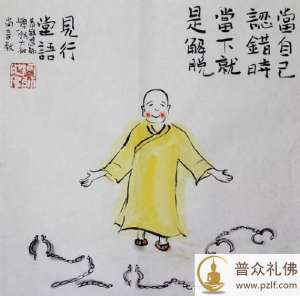 當自己
認錯時
當下就
是解脫
見行
堂語
普众礼佛
www.pzlf.com